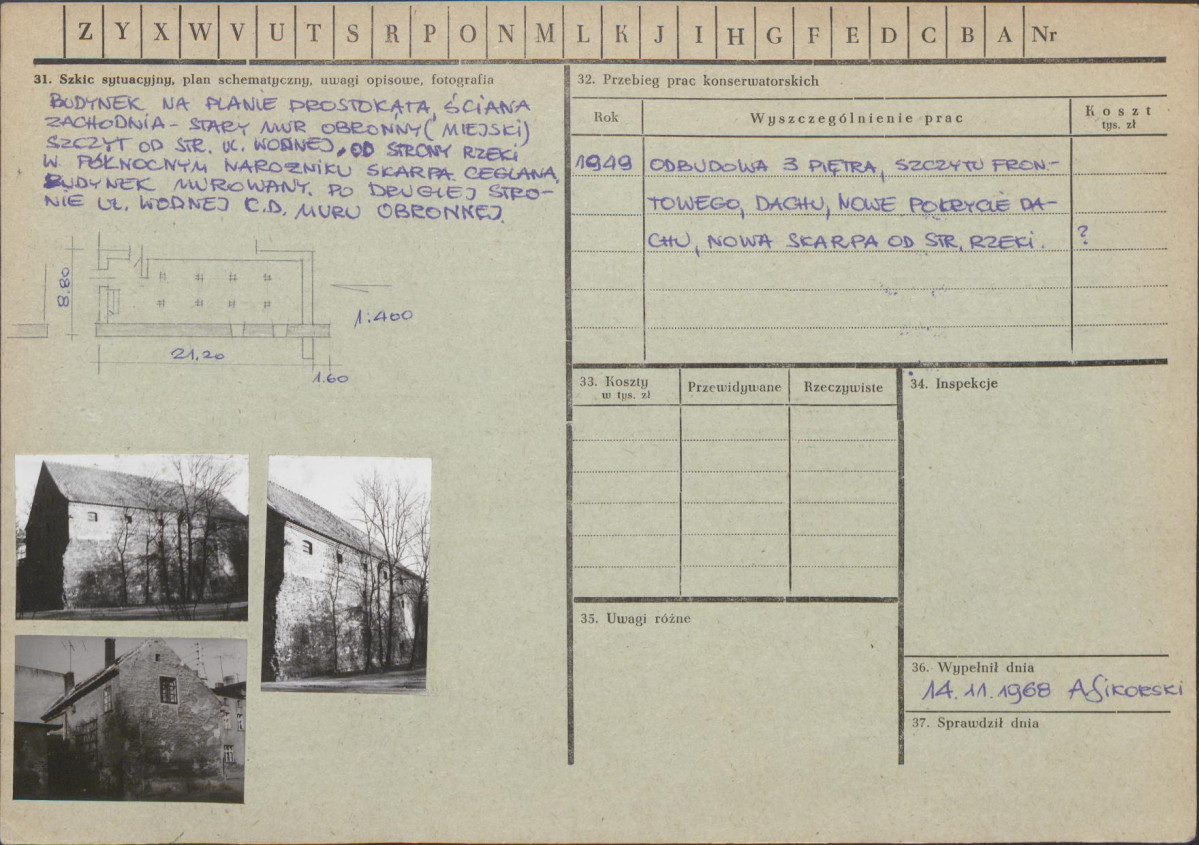 Z Y X W V U T S R P O N M L K J I H G F E D C B A Nr
31. Szkic sytuacyjny, plan schematyczny, uwagi opisowe, fotografia
BUDYNEK NA PLANIE PROSTOKĄTA, ŚCIANA
ZACHODNIA - STARY MUR OBRONNY (MIEJSKI)
SZCZYT OD STR. UL. WODNEJ, OD STRONY RZEKI
W PÓŁNOCNYM NAROŻNIKU SKARPA CEGLANA,
BUDYNEK MUROWANY. PO DRUGIEJ STRO-
NIE UL. WODNEJ C.D. MURU OBRONNEJ.
8.80
1:400
21,20
1.60
32. Przebieg prac konserwatorskich
Rok
Wyszczególnienie prac
Koszt
tys. zł
1949 ODBUDOWA 3 PIĘTRA, SZCZYTU FRON-
TOWEGO, DACHU, NOWE POKRYCIE DA-
CHU, NOWA SKARPA OD STR. RZEKI. ?
33. Koszty
w tys. zł
Przewidywane
Rzeczywiste
34. Inspekcje
35. Uwagi różne
36. Wypełnił dnia
14.11.1968 A Sikorski
37. Sprawdził dnia